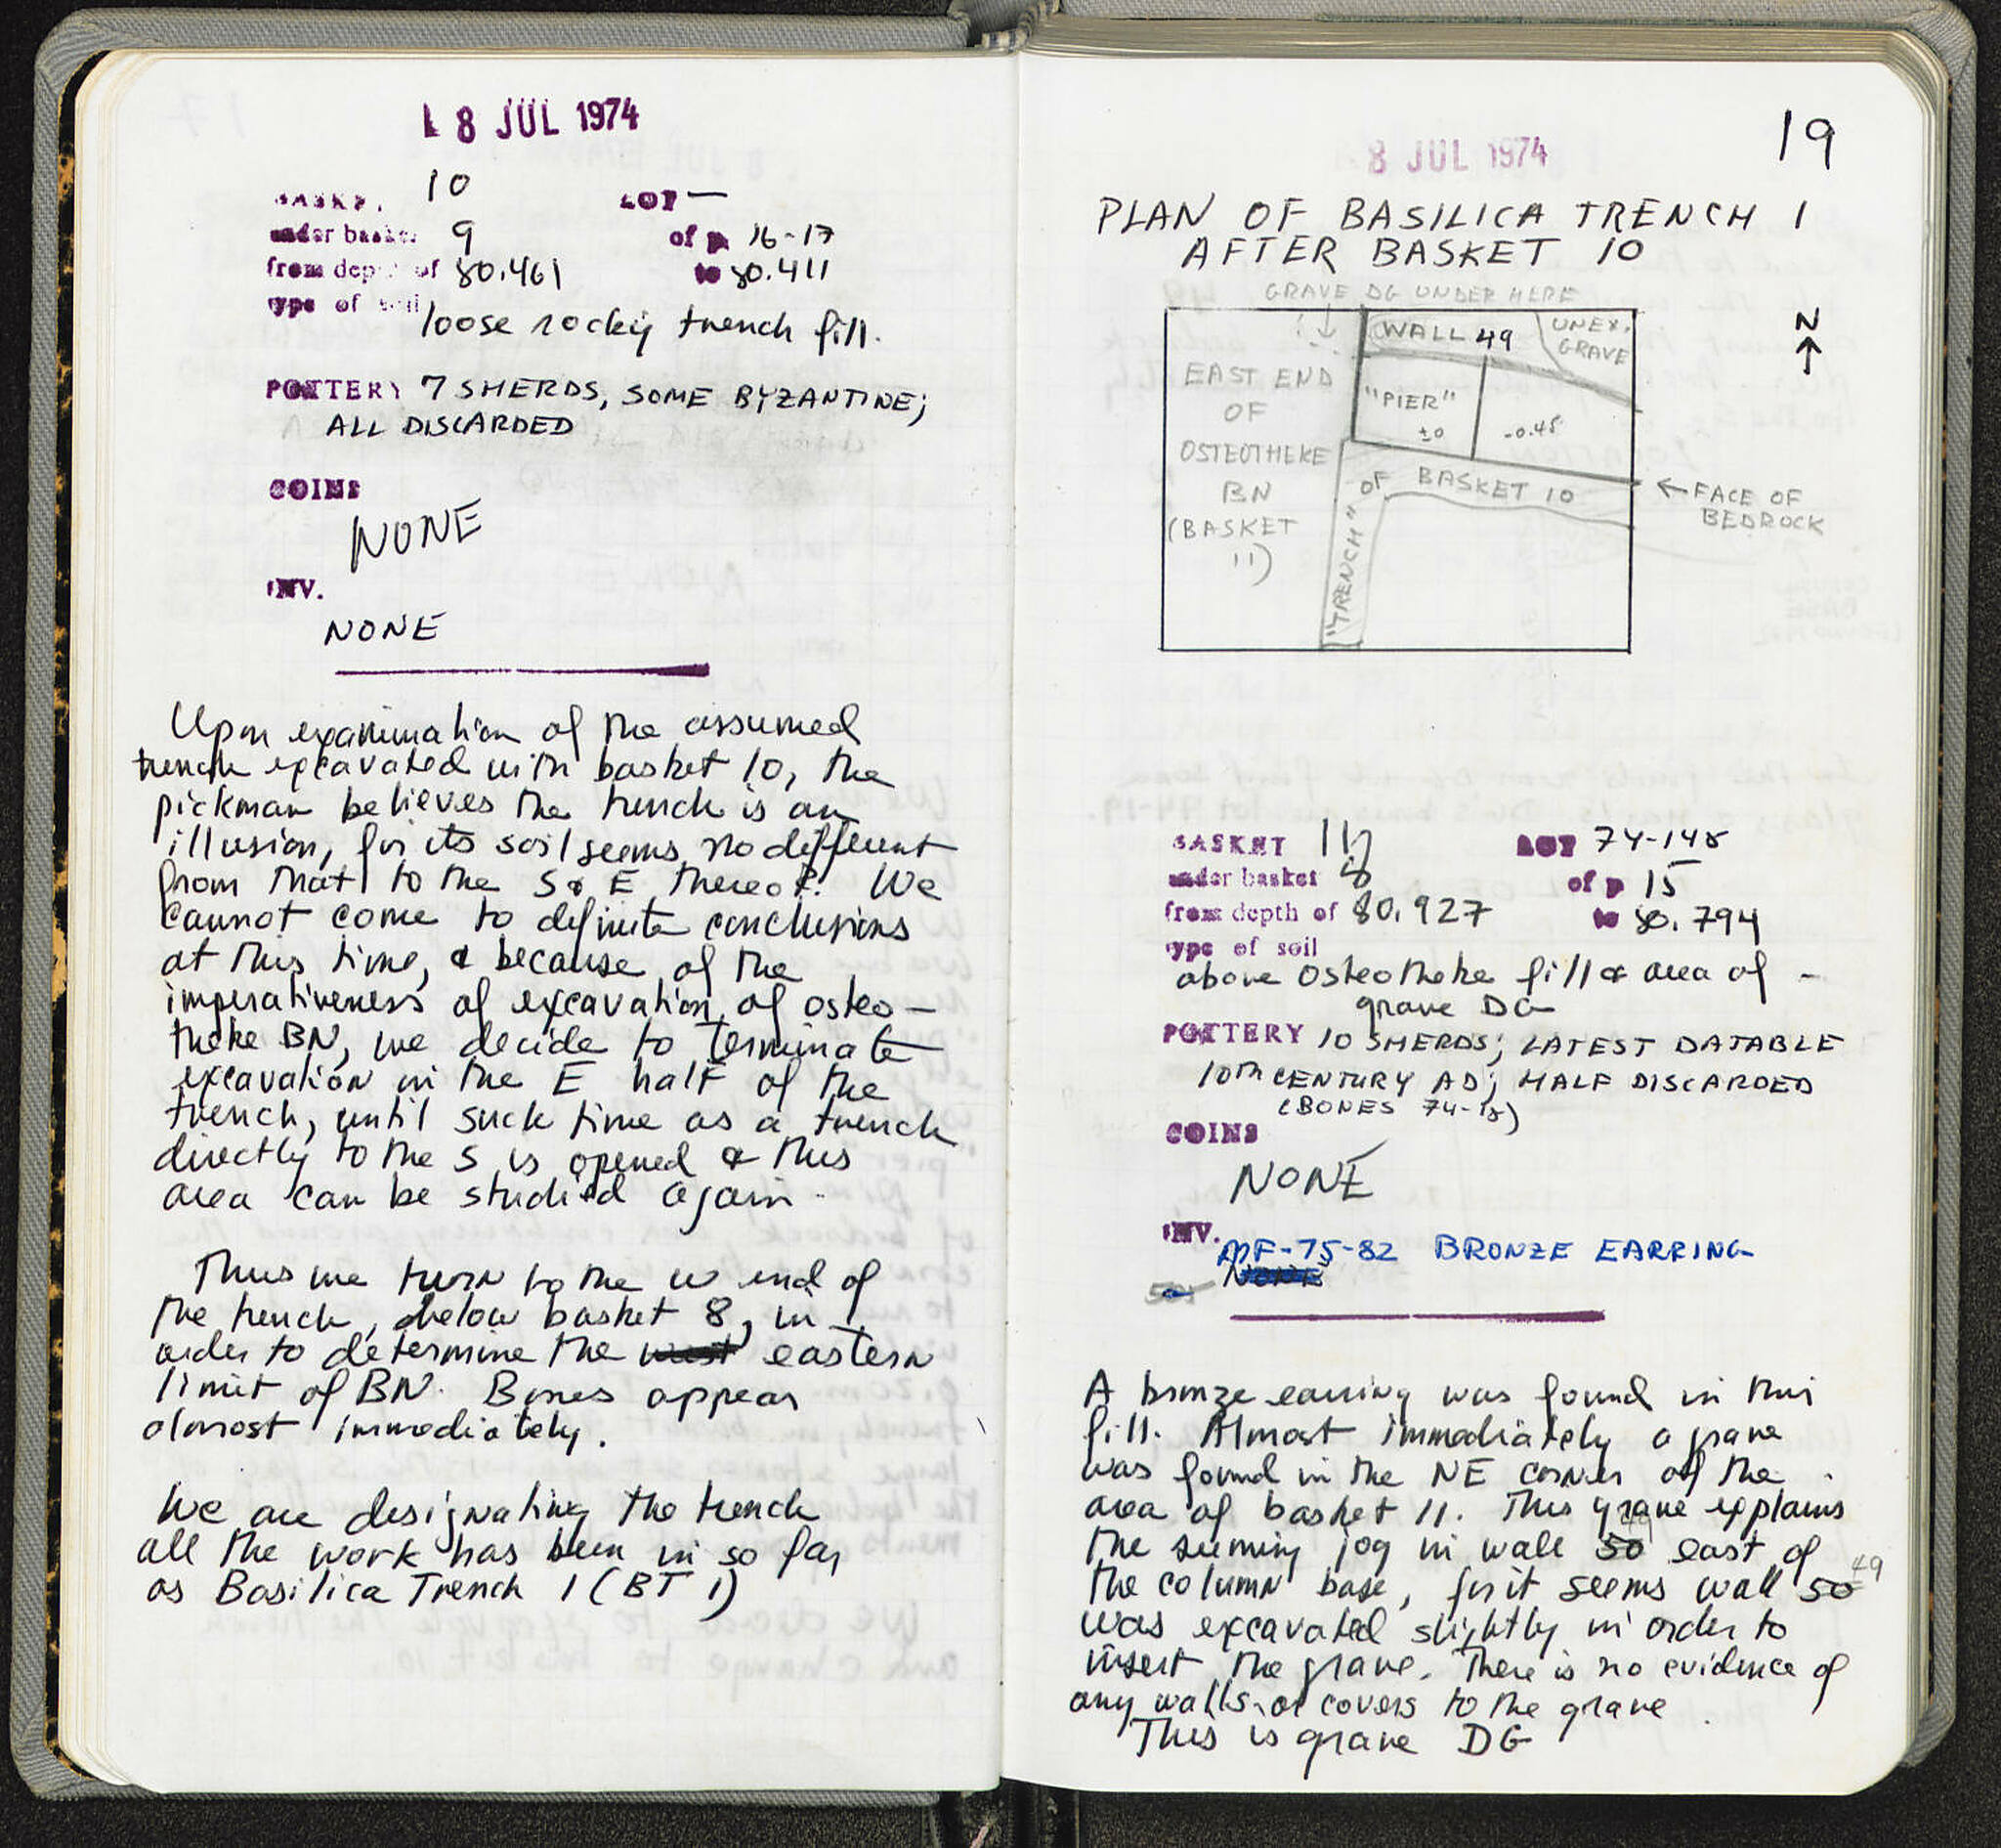 8 JUL 1974
BASKET 10 LOT —
under basket 9 of p. 16-17
from depth of 80.461 to 80.411
type of soil loose rocky trench fill.
POTTERY 7 SHERDS, SOME BYZANTINE;
ALL DISCARDED
COINS
NONE
INV.
NONE
Upon examination of the assumed
trench excavated with basket 10, the
pickman believes the trench is an
illusion, for its soil seems no different
from that to the S & E thereof. We
cannot come to definite conclusions
at this time, & because of the
imperativeness of excavation of osteo-
theke BN, we decide to terminate
excavation in the E half of the
trench, until such time as a trench
directly to the S is opened & this
area can be studied again.
Thus we turn to the W end of
the trench, below basket 8, in
order to determine the west eastern
limit of BN. Bones appear
almost immediately.
We are designating the trench
all the work has been in so far
as Basilica Trench 1 (BT 1)
19
8 JUL 1974
PLAN OF BASILICA TRENCH 1
AFTER BASKET 10
GRAVE DG UNDER HERE
N
WALL 49
UNEX.
GRAVE
EAST END
OF
OSTEOTHEKE
BN
(BASKET
11)
"PIER"
±0
-0.45
"TRENCH" OF BASKET 10
← FACE OF
BEDROCK
BASKET 11 LOT 74-148
under basket 8 of p 15
from depth of 80.927 to 80.794
type of soil
above osteotheke fill & area of -
grave DG
POTTERY 10 SHERDS; LATEST DATABLE
10th CENTURY AD; HALF DISCARDED
(BONES 74-18)
COINS
NONE
INV. MF-75-82 BRONZE EARRING
NONE
A bronze earring was found in this
fill. Almost immediately a grave
was found in the NE corner of the
area of basket 11. This grave explains
the seeming jog in wall 50 49 east of
the column base, for it seems wall 50 49
was excavated slightly in order to
insert the grave. There is no evidence of
any walls or covers to the grave.
This is grave DG